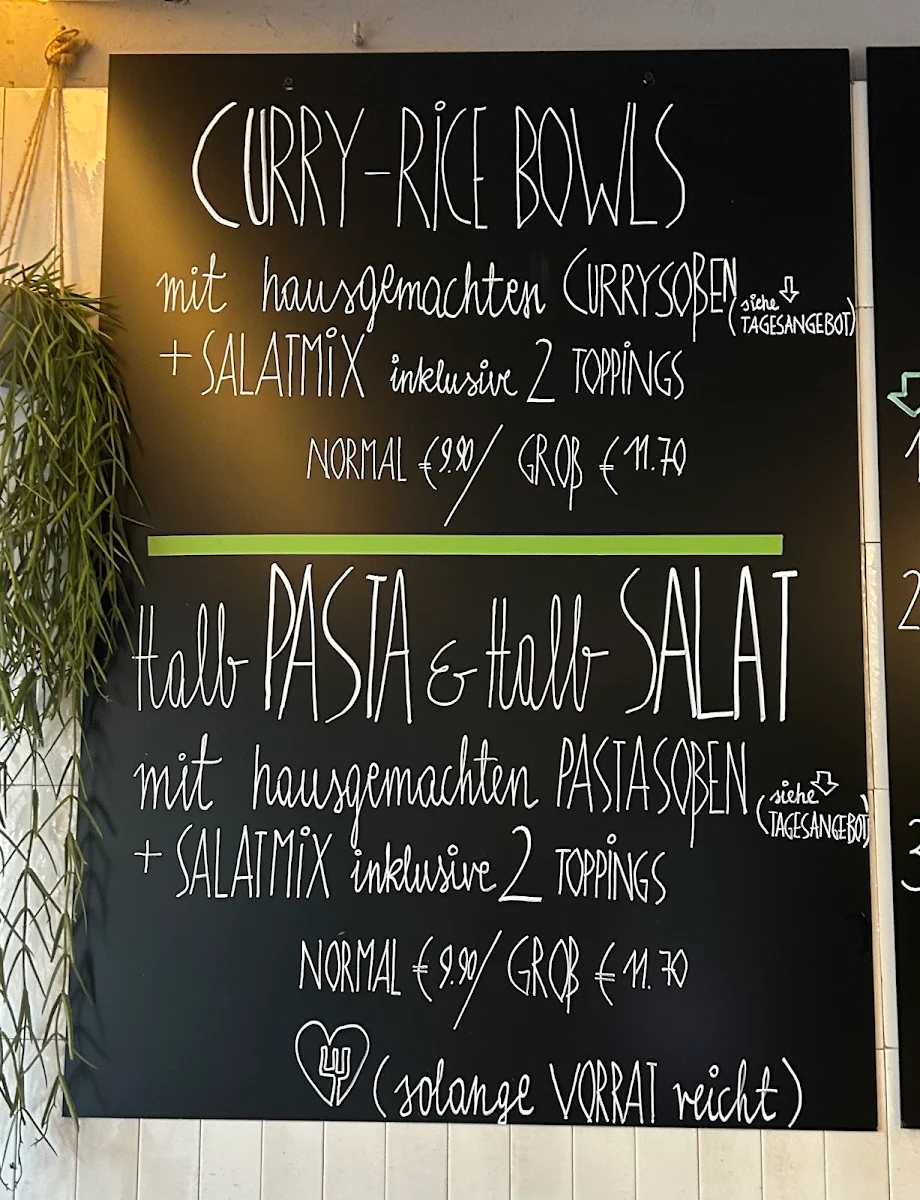 CURRY-RICE BOWLS
mit hausgemachten CURRYSOßEN (siehe TAGESANGEBOT)
+ SALATMIX inklusive 2 TOPPINGS
NORMAL € 9.90 / GROß € 11.70
Halb PASTA & Halb SALAT
mit hausgemachten PASTASOßEN (siehe TAGESANGEBOT)
+ SALATMIX inklusive 2 TOPPINGS
NORMAL € 9.90 / GROß € 11.70
(solange VORRAT reicht)
1
2
3